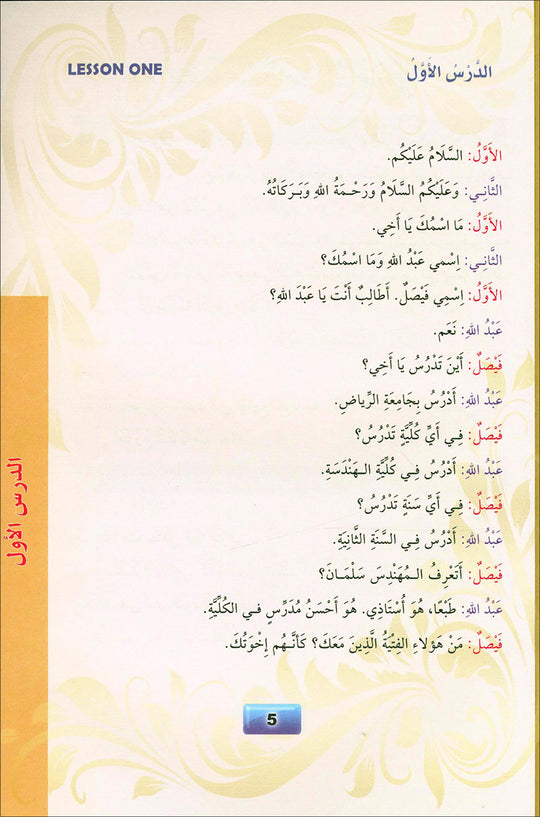 LESSON ONE
الدَّرْسُ الأَوَّلُ
الأَوَّلُ: السَّلَامُ عَلَيْكُم.
الثَّانِـي: وَعَلَيْكُمُ السَّلَامُ وَرَحْـمَةُ اللهِ وَبَـرَكَاتُهُ.
الأَوَّلُ: مَا اسْمُكَ يَا أَخِي.
الثَّانِـي: اِسْمِي عَبْدُ اللهِ وَمَا اسْمُكَ؟
الأَوَّلُ: اِسْمِي فَيْصَلٌ. أَطَالِبٌ أَنْتَ يَا عَبْدَ اللهِ؟
عَبْدُ اللهِ: نَعَم.
فَيْصَلٌ: أَيْنَ تَدْرُسُ يَا أَخِي؟
عَبْدُ اللهِ: أَدْرُسُ بِجَامِعَةِ الرِّيَاضِ.
فَيْصَلٌ: فِـي أَيِّ كُلِّيَّةٍ تَدْرُسُ؟
عَبْدُ اللهِ: أَدْرُسُ فِـي كُلِّيَّةِ الـهَنْدَسَةِ.
فَيْصَلٌ: فِـي أَيِّ سَنَةٍ تَدْرُسُ؟
عَبْدُ اللهِ: أَدْرُسُ فِـي السَّنَةِ الثَّانِيَةِ.
فَيْصَلٌ: أَتَعْرِفُ الـمُهَنْدِسَ سَلْمَـانَ؟
عَبْدُ اللهِ: طَبْعًا، هُوَ أُسْتَاذِي. هُوَ أَحْسَنُ مُدَرِّسٍ فـي الكُلِّيَّةِ.
فَيْصَلٌ: مَنْ هَؤلاءِ الفِتْيَةُ الَّذِينَ مَعَكَ؟ كَأَنَّـهُم إِخْوَتُكَ.
الدرس الأول
5